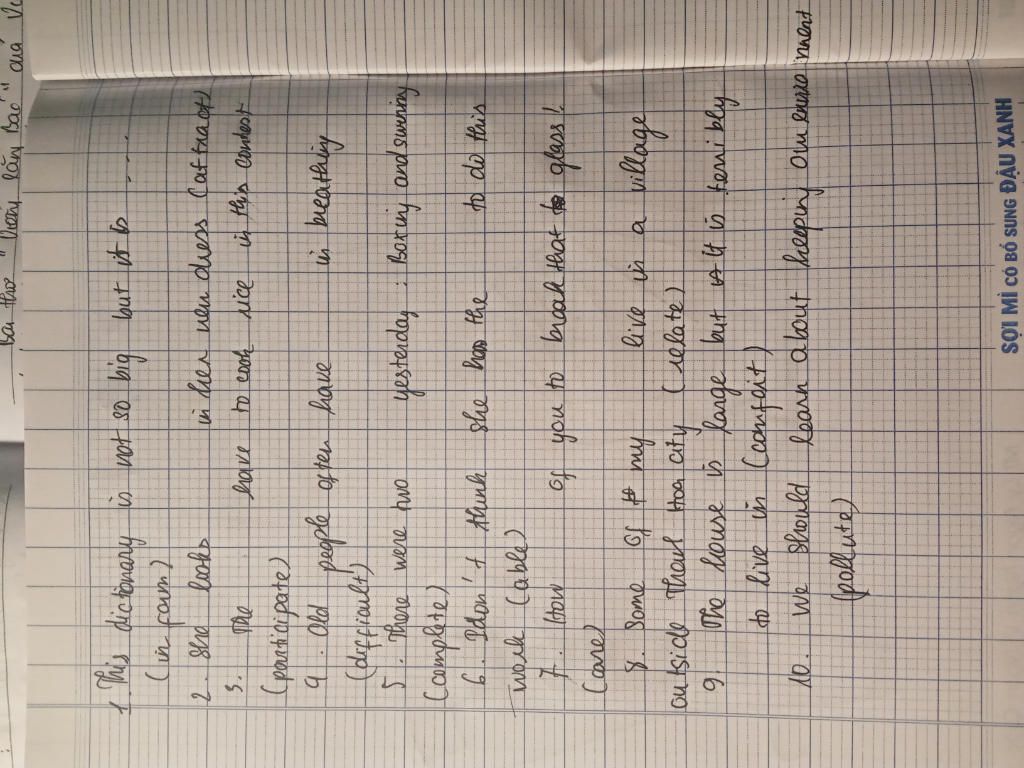 1. This dictionary is not so big but it is .....
(in form)
2. she looks in her new dress (attract)
3. The have to cook rice in this contest
(participate)
4. Old people often have in breathing
(difficult)
5. There were two yesterday : Boxing and swimming
(complete)
6. I don't think she has the to do this
work (able)
7. How of you to break that glass!
(care)
8. Some of my live in a village
outside Thanh Hoa city (relate)
9. The house is large but it is terribly
to live in (comfort)
10. We should learn about keeping our environment
(pollute)
SỢI MÌ CÓ BỔ SUNG ĐẬU XANH